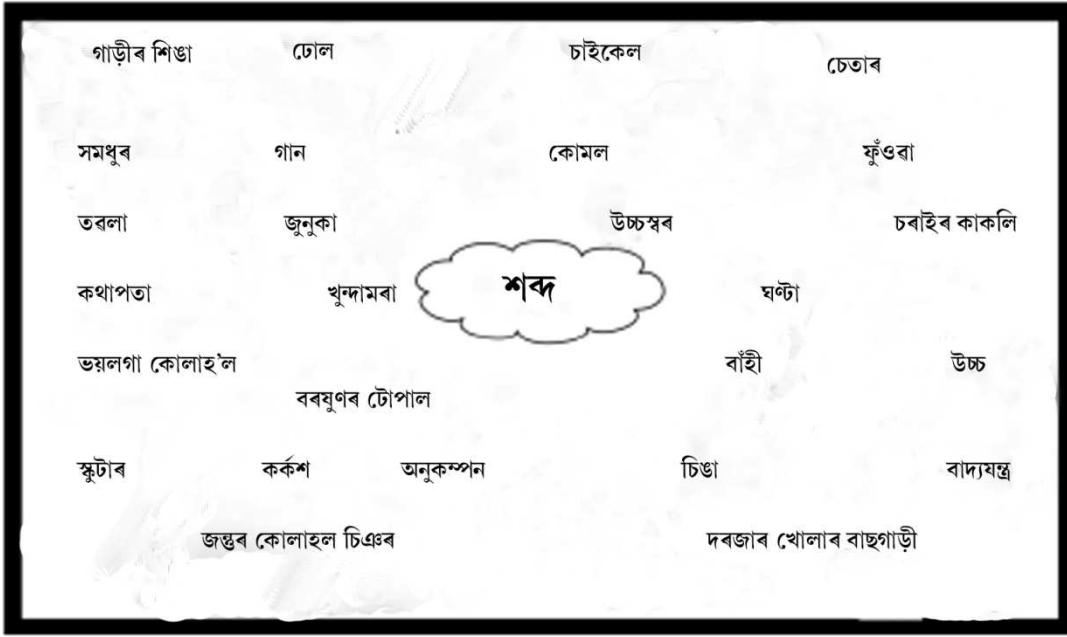 গাড়ীৰ শিঙা ঢোল চাইকেল চেতাৰ
সমধুৰ গান কোমল ফুঁওৱা
তবলা জুনুকা উচ্চস্বৰ চৰাইৰ কাকলি
কথাপতা খুন্দামৰা শব্দ ঘণ্টা
ভয়লগা কোলাহ'ল বাঁহী উচ্চ
বৰষুণৰ টোপাল
স্কুটাৰ কৰ্কশ অনুকম্পন চিঙা বাদ্যযন্ত্ৰ
জন্তুৰ কোলাহল চিঞৰ দৰজাৰ খোলাৰ বাছগাড়ী